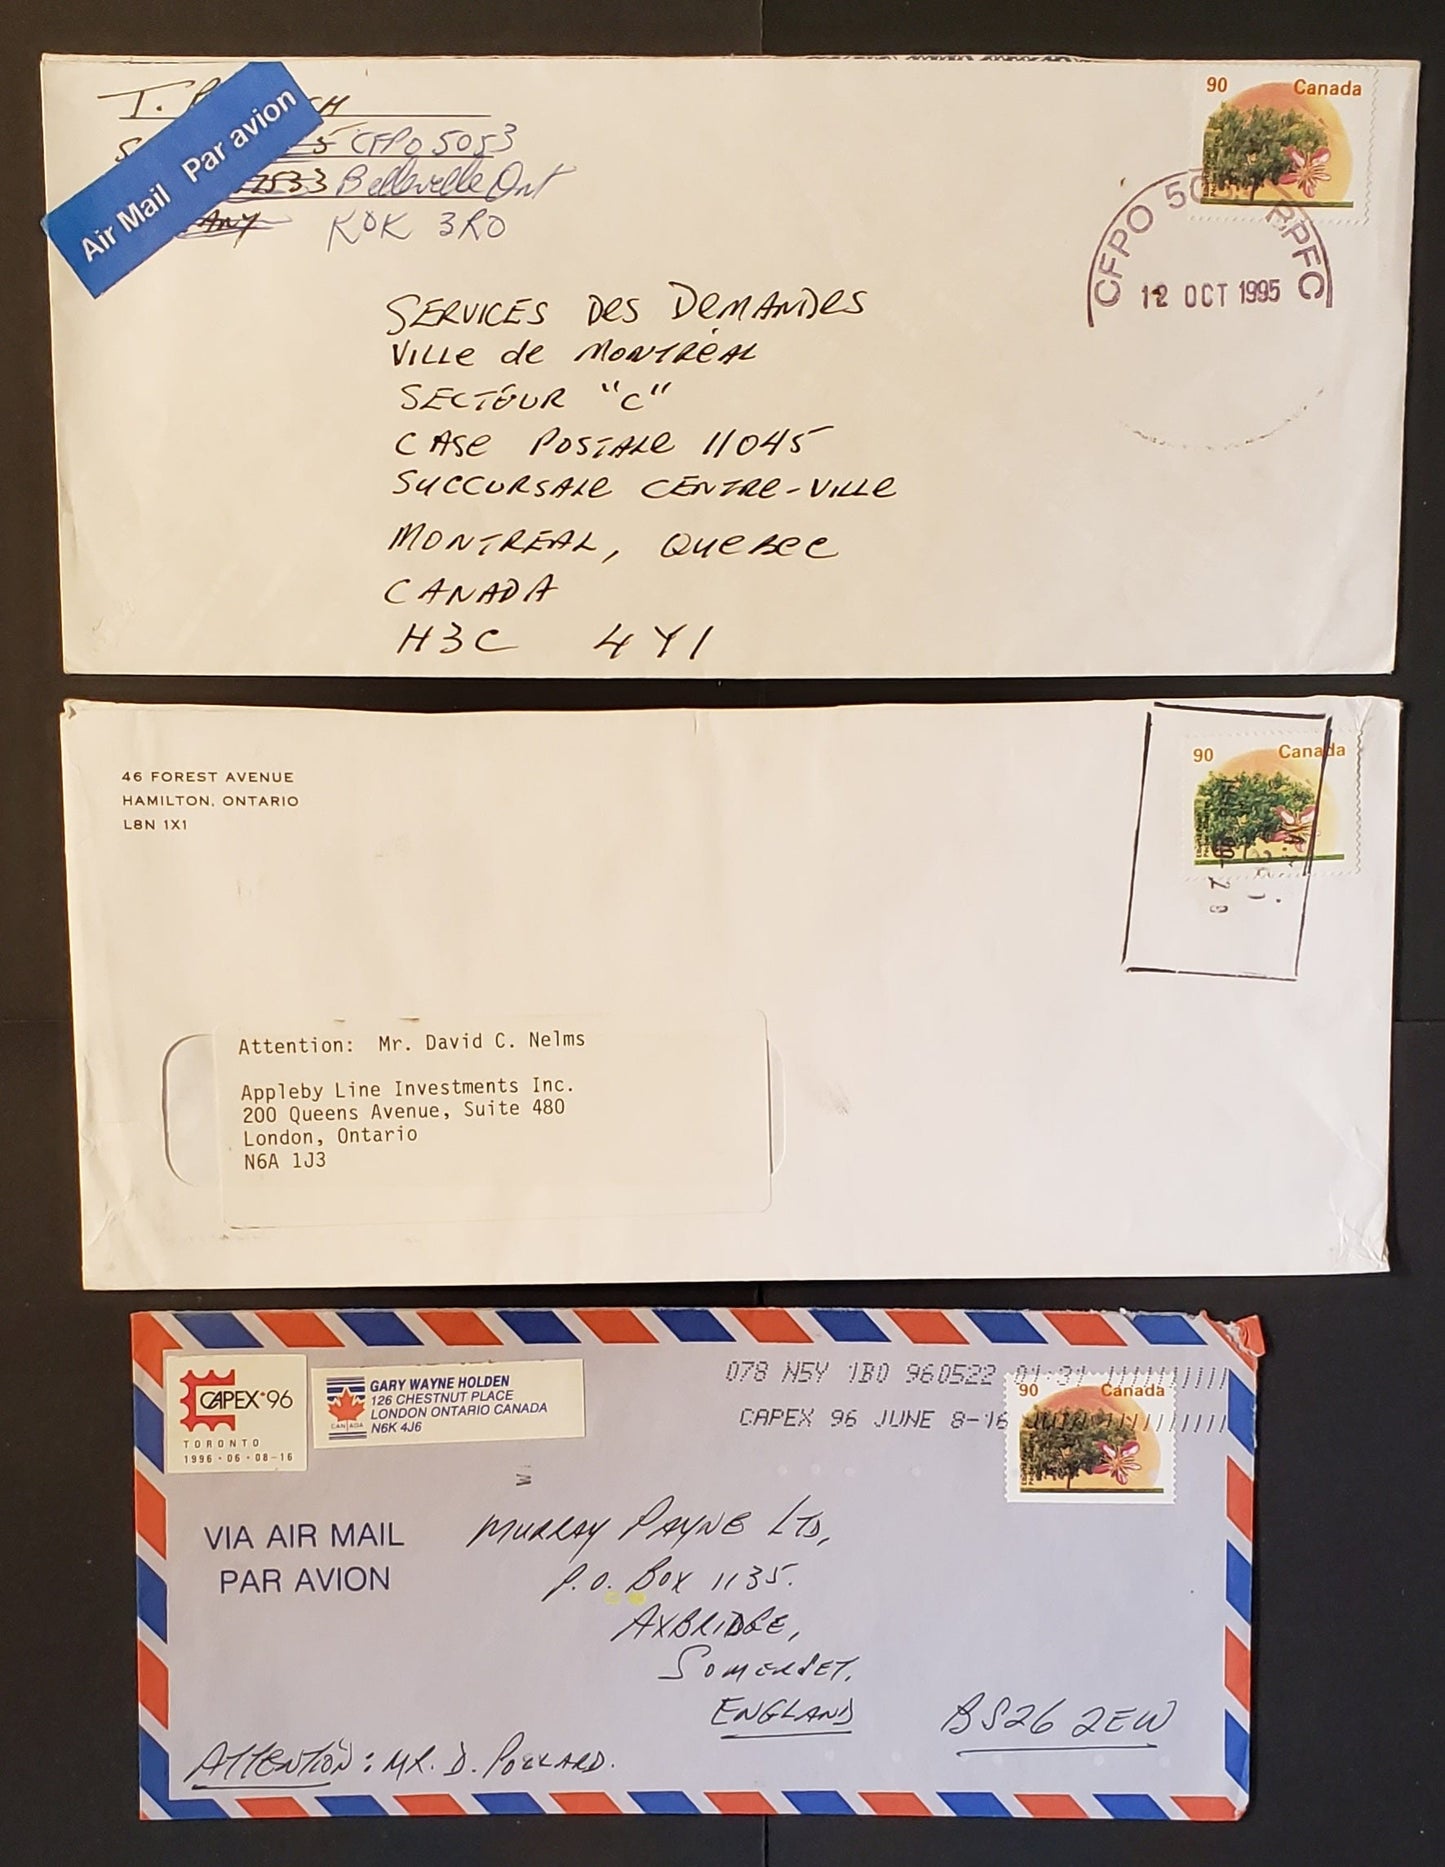 Air Mail Par avion
T.
CFPO 5053
7533 Belleville Ont
K0K 3R0
90 Canada
CFPO 50 BPFC
12 OCT 1995
SERVICES DES DEMANDES
VILLE de MONTRÉAL
SECTEUR "C"
CASE POSTALE 11045
SUCCURSALE CENTRE-VILLE
MONTREAL, QUEBEC
CANADA
H3C 4Y1
46 FOREST AVENUE
HAMILTON, ONTARIO
L8N 1X1
90 Canada
Attention: Mr. David C. Nelms
Appleby Line Investments Inc.
200 Queens Avenue, Suite 480
London, Ontario
N6A 1J3
CAPEX·96
TORONTO
1996·06·08-16
GARY WAYNE HOLDEN
126 CHESTNUT PLACE
LONDON ONTARIO CANADA
N6K 4J6
CANADA
078 N5Y 1B0 960522 01:31
CAPEX 96 JUNE 8-16 JUIN
90 Canada
VIA AIR MAIL
PAR AVION
MURRAY PAYNE LTD,
P.O. BOX 1135.
AXBRIDGE,
SOMERSET.
ENGLAND
BS26 2EW
ATTENTION: MR. D. PockARD.